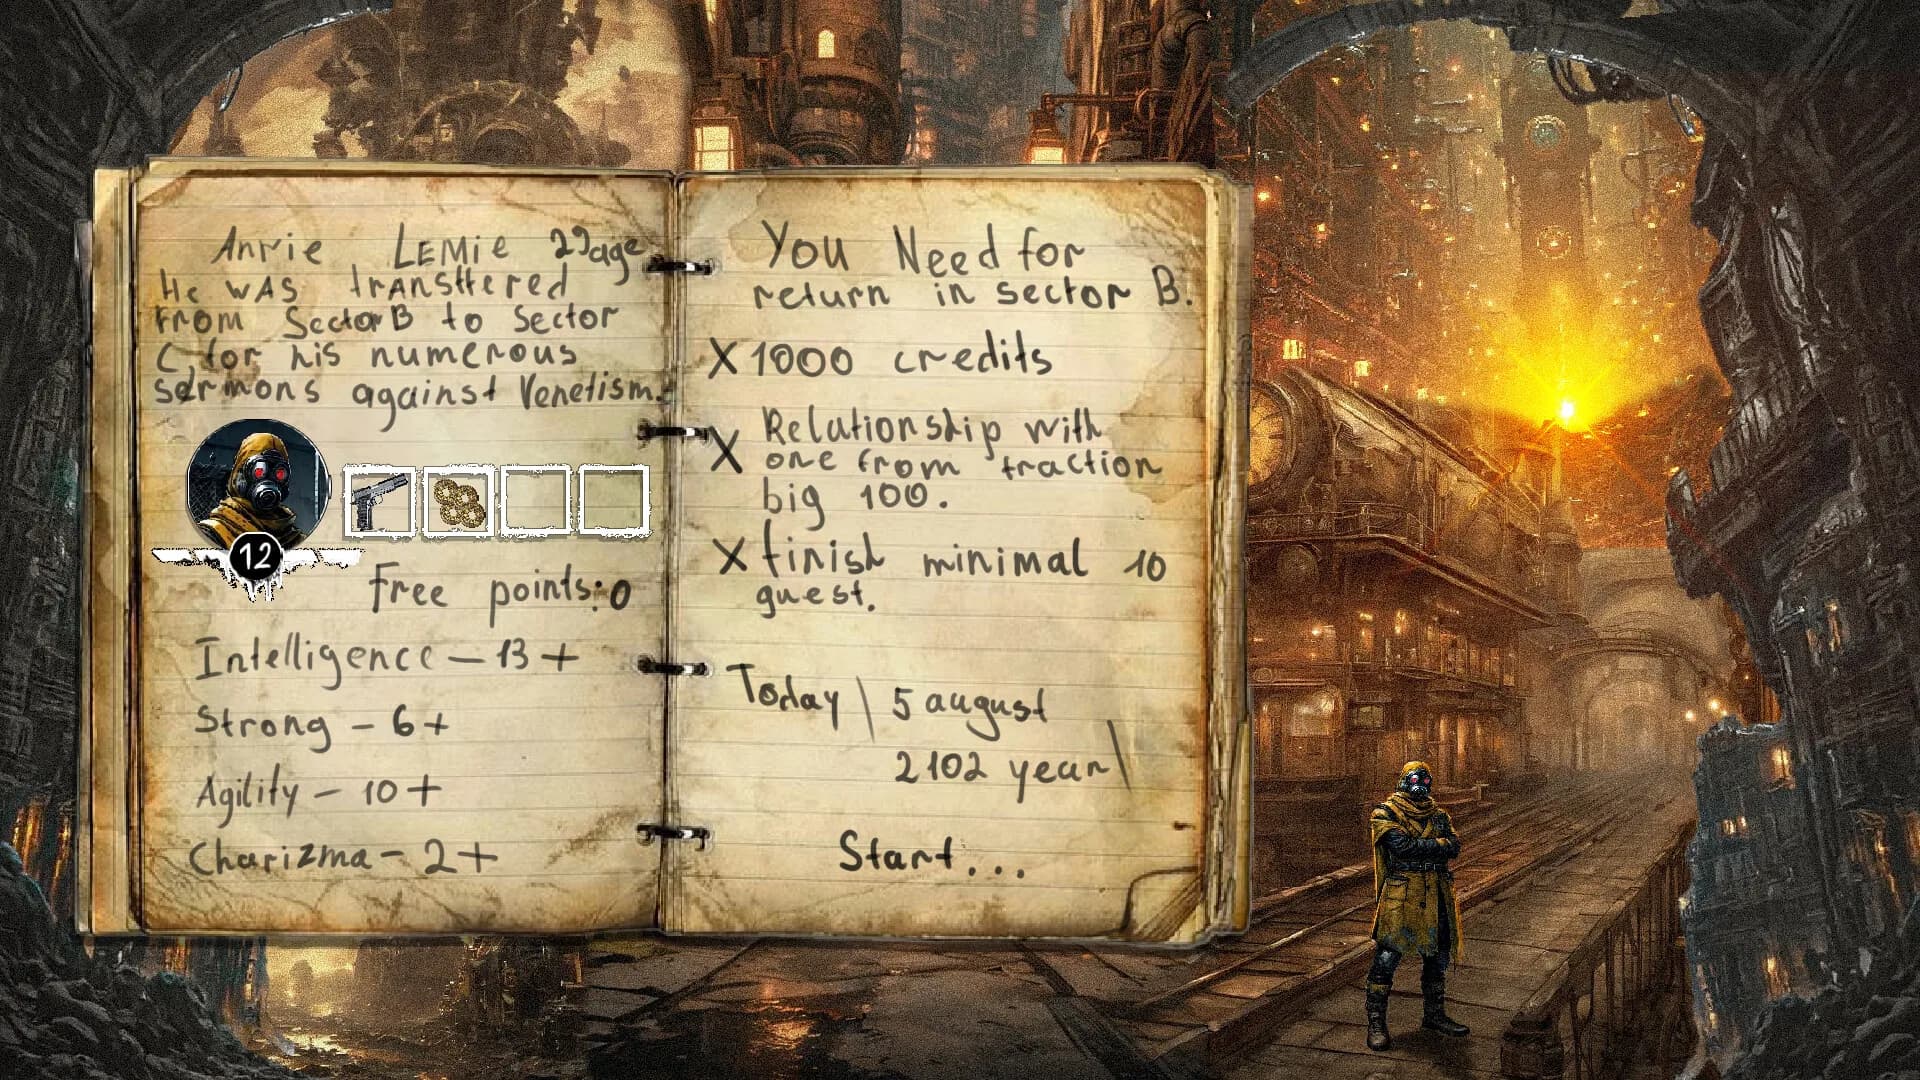 Anrie LEMIE 29age
He WAS transttered
from Sector B to Sector
C, for his numerous
sermons against Venetism.
12
Free points: 0
Intelligence - 13 +
Strong - 6 +
Agility - 10 +
Charizma - 2 +
You Need for
return in sector B.
X 1000 credits
X Relationship with
one from traction
big 100.
X finish minimal 10
quest.
Today \ 5 august
2102 year \
Start...